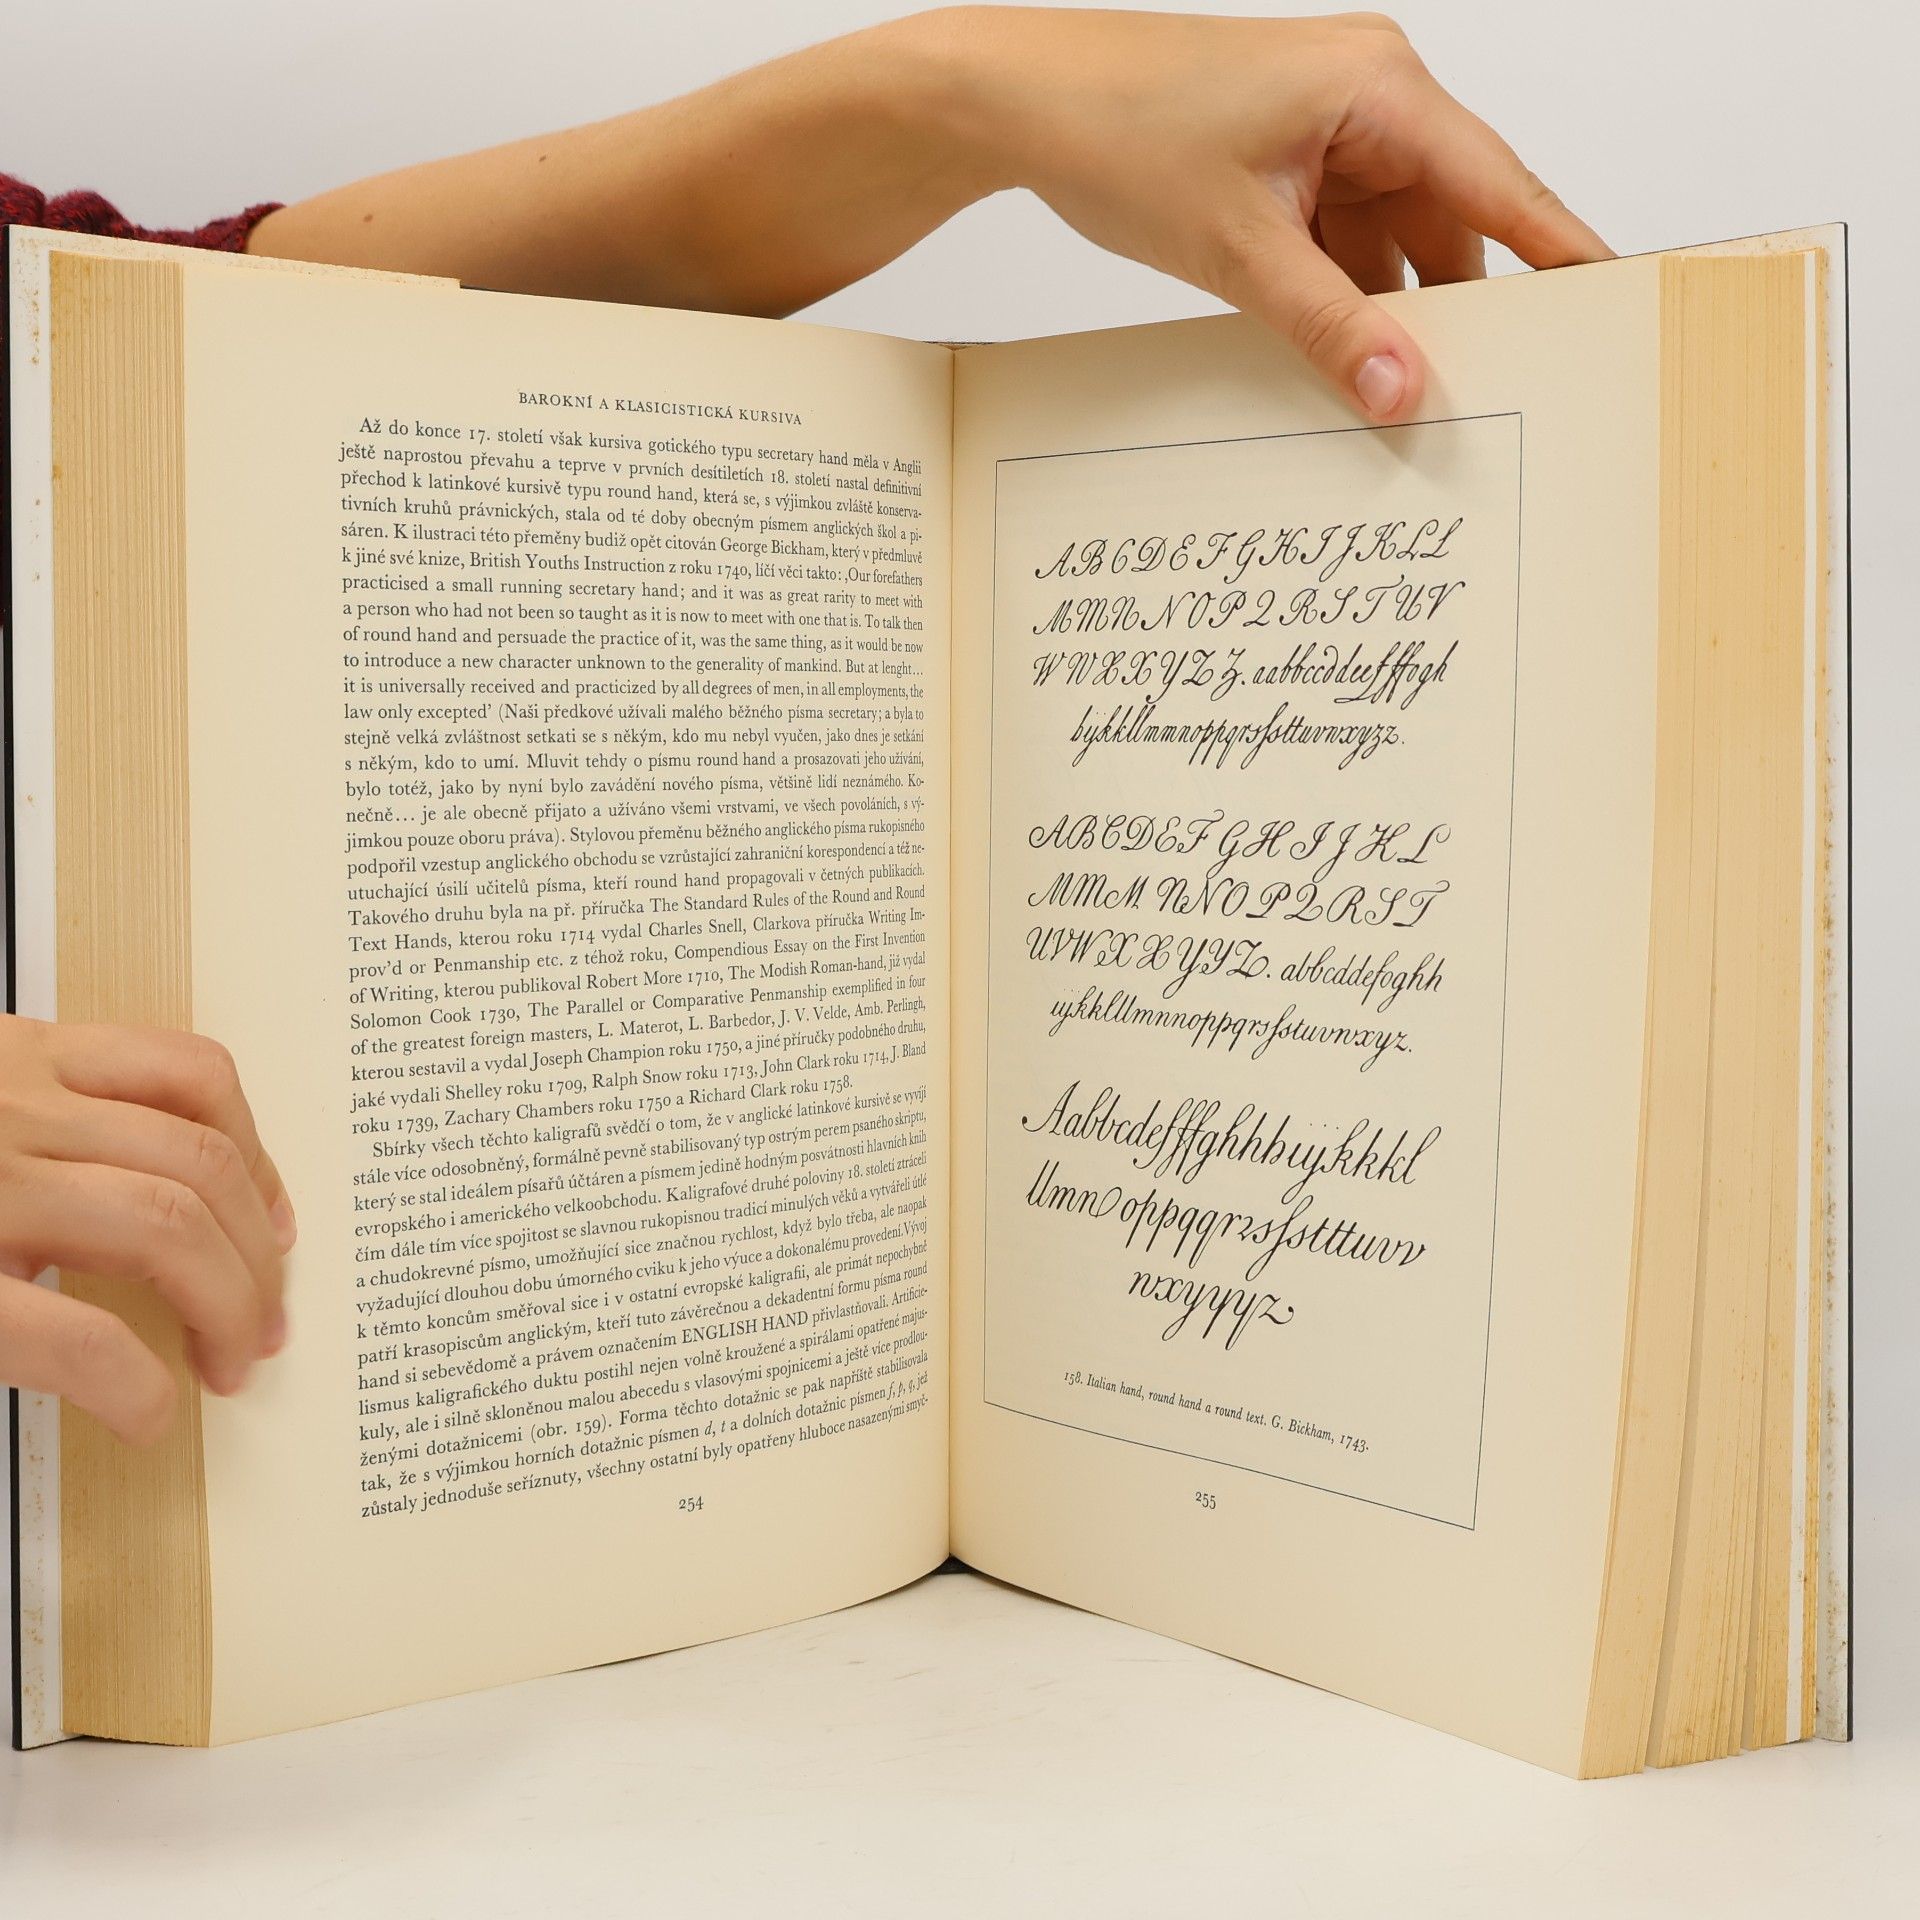 BAROKNÍ A KLASICISTICKÁ KURSIVA
Až do konce 17. století však kursiva gotického typu secretary hand měla v Anglii
ještě naprostou převahu a teprve v prvních desítiletích 18. století nastal definitivní
přechod k latinkové kursivě typu round hand, která se, s výjimkou zvláště konserva-
tivních kruhů právnických, stala od té doby obecným písmem anglických škol a pí-
sáren. K ilustraci této přeměny budiž opět citován George Bickham, který v předmluvě
k jiné své knize, British Youths Instruction z roku 1740, líčí věci takto: ‚Our forefathers
practicised a small running secretary hand; and it was as great rarity to meet with
a person who had not been so taught as it is now to meet with one that is. To talk then
of round hand and persuade the practice of it, was the same thing, as it would be now
to introduce a new character unknown to the generality of mankind. But at lenght...
it is universally received and practicized by all degrees of men, in all employments, the
law only excepted’ (Naši předkové užívali malého běžného písma secretary; a byla to
stejně velká zvláštnost setkati se s někým, kdo mu nebyl vyučen, jako dnes je setkání
s někým, kdo to umí. Mluvit tehdy o písmu round hand a prosazovati jeho užívání,
bylo totéž, jako by nyní bylo zavádění nového písma, většině lidí neznámého. Ko-
nečně... je ale obecně přijato a užíváno všemi vrstvami, ve všech povoláních, s vý-
jimkou pouze oboru práva). Stylovou přeměnu běžného anglického písma rukopisného
podpořil vzestup anglického obchodu se vzrůstající zahraniční korespondencí a též ne-
utuchající úsilí učitelů písma, kteří round hand propagovali v četných publikacích.
Takového druhu byla na př. příručka The Standard Rules of the Round and Round
Text Hands, kterou roku 1714 vydal Charles Snell, Clarkova příručka Writing Im-
prov’d or Penmanship etc. z téhož roku, Compendious Essay on the First Invention
of Writing, kterou publikoval Robert More 1710, The Modish Roman-hand, již vydal
Solomon Cook 1730, The Parallel or Comparative Penmanship exemplified in four
of the greatest foreign masters, L. Materot, L. Barbedor, J. V. Velde, Amb. Perlingh,
kterou sestavil a vydal Joseph Champion roku 1750, a jiné příručky podobného druhu,
jaké vydali Shelley roku 1709, Ralph Snow roku 1713, John Clark roku 1714, J. Bland
roku 1739, Zachary Chambers roku 1750 a Richard Clark roku 1758.
Sbírky všech těchto kaligrafů svědčí o tom, že v anglické latinkové kursivě se vyvíjí
stále více odosobněný, formálně pevně stabilisovaný typ ostrým perem psaného skriptu,
který se stal ideálem písařů účtáren a písmem jedině hodným posvátnosti hlavních knih
evropského i amerického velkoobchodu. Kaligrafové druhé poloviny 18. století ztráceli
čím dále tím více spojitost se slavnou rukopisnou tradicí minulých věků a vytvářeli útlé
a chudokrevné písmo, umožňující sice značnou rychlost, když bylo třeba, ale naopak
vyžadující dlouhou dobu úmorného cviku k jeho výuce a dokonalému provedení. Vývoj
k těmto koncům směřoval sice i v ostatní evropské kaligrafii, ale primát nepochybně
patří krasopiscům anglickým, kteří tuto závěrečnou a dekadentní formu písma round
hand si sebevědomě a právem označením ENGLISH HAND přivlastňovali. Artificie-
lismus kaligrafického duktu postihl nejen volně kroužené a spirálami opatřené majus-
kuly, ale i silně skloněnou malou abecedu s vlasovými spojnicemi a ještě více prodlou-
ženými dotažnicemi (obr. 159). Forma těchto dotažnic se pak napříště stabilisovala
tak, že s výjimkou horních dotažnic písmen d, t a dolních dotažnic písmen f, p, q, jež
zůstaly jednoduše seříznuty, všechny ostatní byly opatřeny hluboce nasazenými smyč-
254
A B C D E F G H I J K L L
M M N N O P Q R S T U V
W W X X Y Z Z. aabbccddeefffogh
hijkkllmmnoppqrsſsttuvwxyzz.
A B C D E F G H I J K L
M M M N N O P Q R S T
U V W X X Y Y Z. abbcddefoghh
ijkkllllmnnoppqrsſstuvwxyz.
Aabbcdefffghhhijkkkl
llmn oppqqrzsſstttuvv
wxyyyz
158. Italian hand, round hand a round text. G. Bickham, 1743.
255